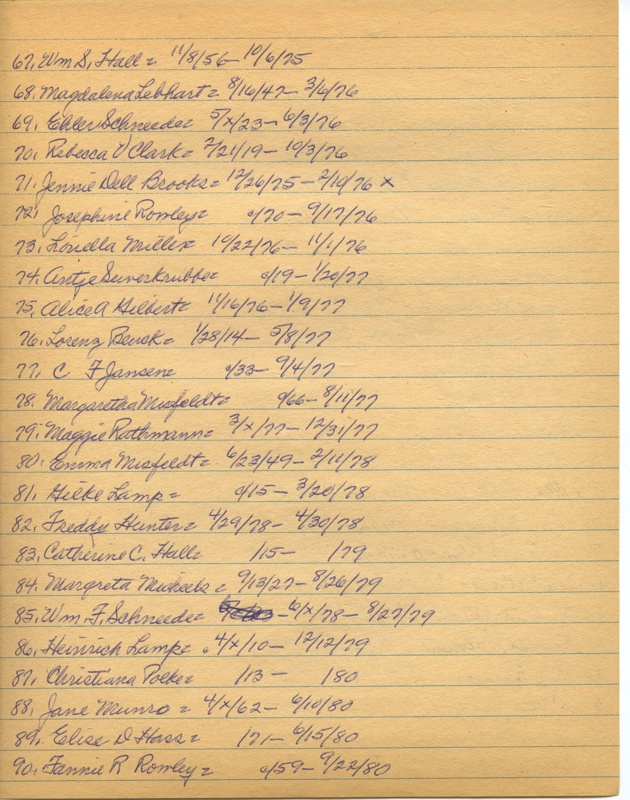 67. Wm S. Hall = 11/8/56 – 10/6/75
68. Magdalena Lebhart = 8/16/47 – 3/6/76
69. Ehler Schneede = 5/x/23 – 6/3/76
70. Rebecca V Clark = 2/21/19 – 10/3/76
71. Jennie Dell Brooks = 12/26/75 – 2/19/76 x
72. Josephine Rowley = c/70 – 9/17/76
73. Loriella Miller = 10/22/76 – 11/1/76
74. Antje Suverkrubbe = c/19 – 1/20/77
75. Alice A Gilbert = 11/16/76 – 1/9/77
76. Lorenz Beuck = 1/28/14 – 5/8/77
77. C F Jansen = c/33 – 9/4/77
78. Margaretha Misfeldt = c/66 – 8/11/77
79. Maggie Rathmann = 3/x/77 – 12/31/77
80. Emma Misfeldt = 6/23/49 – 2/11/78
81. Hilke Lamp = c/15 – 3/20/78
82. Freddy Hunter = 4/29/78 – 4/30/78
83. Catherine C. Hall = /15 – /79
84. Margreta Micheels = 9/13/27 – 8/26/79
85. Wm F. Schneede = – 6/x/78 – 8/27/79
86. Heinrich Lamp = 4/x/10 – 12/12/79
87. Christiana Polke = /13 – /80
88. Jane Munro = 4/x/62 – 6/10/80
89. Elise D Hass = /71 – 6/15/80
90. Fannie R Rowley = c/59 – 9/22/80